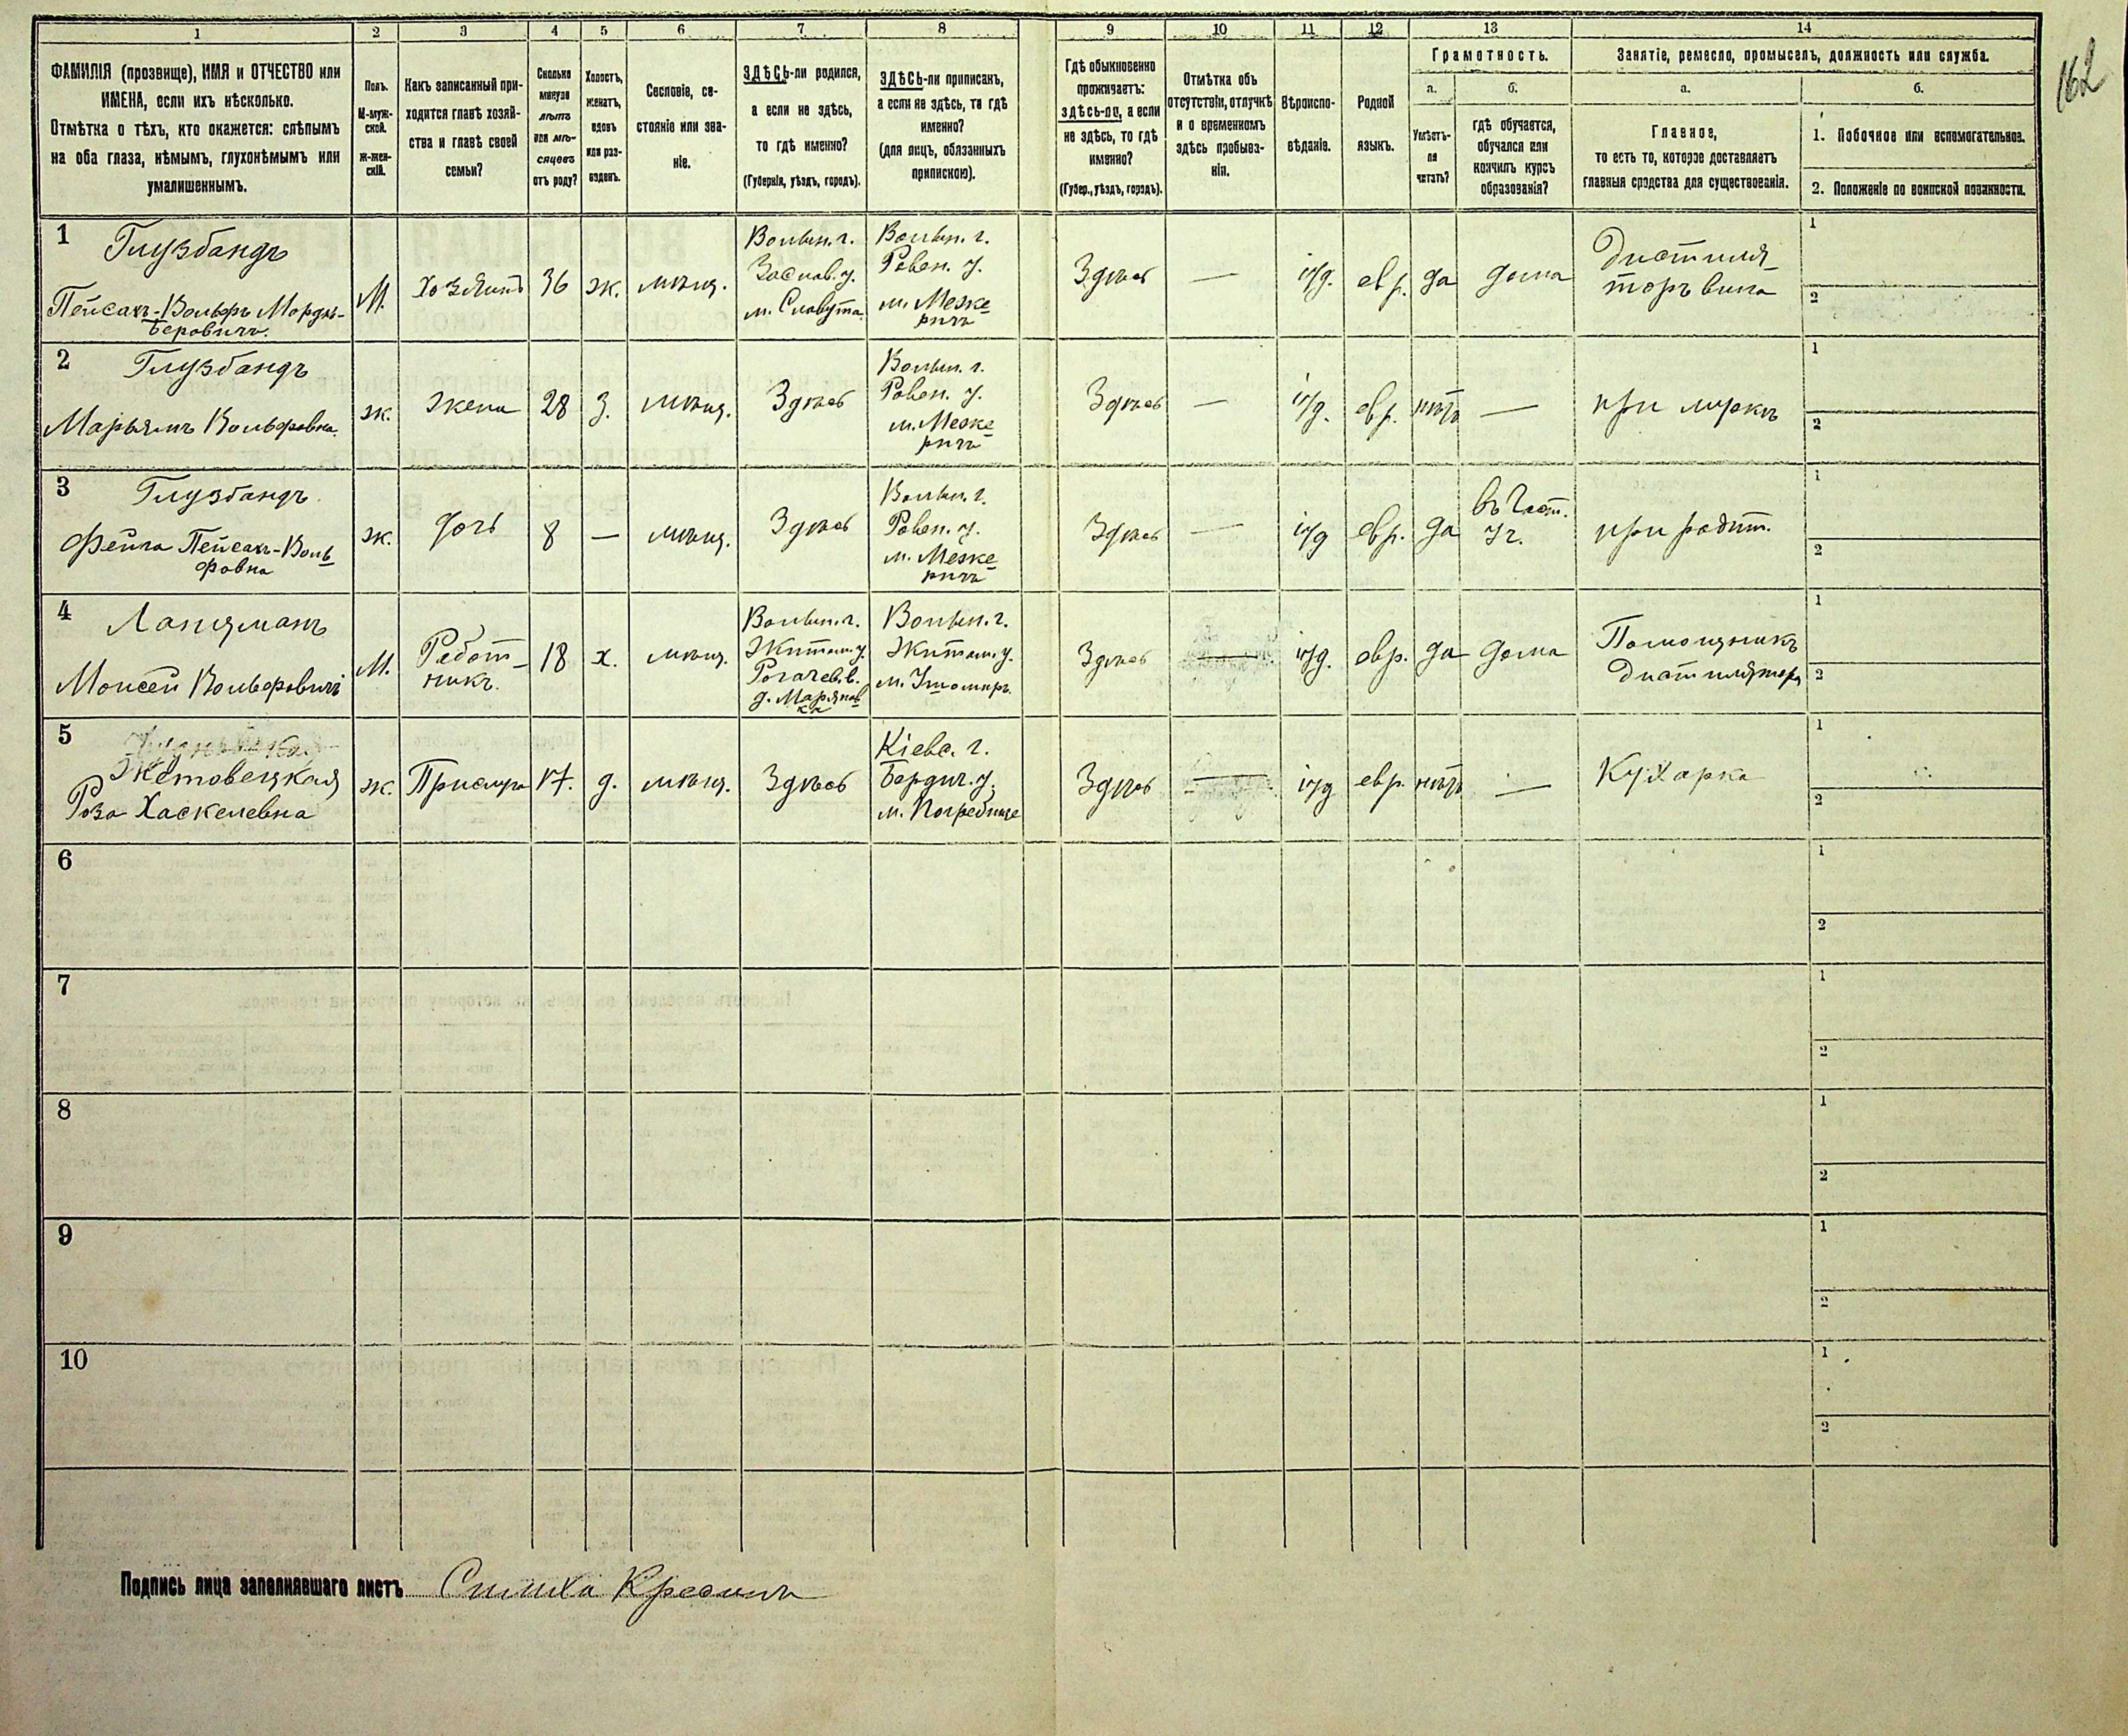 162
1 2 3 4 5 6 7 8 9 10 11 12 13 14
ФАМИЛІЯ (прозвище), ИМЯ и ОТЧЕСТВО или
ИМЕНА, если ихъ нѣсколько.
Отмѣтка о тѣхъ, кто окажется: слѣпымъ
на оба глаза, нѣмымъ, глухонѣмымъ или
умалишеннымъ.
Полъ.
М-муж-
ской.
ж-жен-
скій.
Какъ записанный при-
ходится главѣ хозяй-
ства и главѣ своей
семьи?
Сколько
минуло
лѣтъ
или мѣ-
сяцевъ
отъ роду?
Холостъ,
женатъ,
вдовъ
или раз-
веденъ.
Сословіе, со-
стояніе или зва-
ніе.
ЗДѢСЬ-ли родился,
а если не здѣсь,
то гдѣ именно?
(Губернія, уѣздъ, городъ).
ЗДѢСЬ-ли приписанъ,
а если не здѣсь, то гдѣ
именно?
(для лицъ, обязанныхъ
припискою).
Гдѣ обыкновенно
проживаетъ:
здѣсь-ли, а если
не здѣсь, то гдѣ
именно?
(Губер., уѣздъ, городъ).
Отмѣтка объ
отсутствіи, отлучкѣ
и о временномъ
здѣсь пребыва-
ніи.
Вѣроиспо-
вѣданіе.
Родной
языкъ.
Грамотность.
а.
Умѣетъ-
ли
читать?
б.
гдѣ обучается,
обучался или
кончилъ курсъ
образованія?
Занятіе, ремесло, промыселъ, должность или служба.
а.
Главное,
то есть то, которое доставляетъ
главныя средства для существованія.
б.
1. Побочное или вспомогательное.
2. Положеніе по воинской повинности.
1
Глузбандъ
Пейсахъ-Вольфъ Мордъ-
Беровичъ.
М.
Хозяинъ
36
ж.
мѣщ.
Волын. г.
Заслав. у.
м. Славута
Волын. г.
Ровен. у.
м. Меже
ричъ
Здѣсь
—
іуд.
евр.
да
дома
Дистиля-
торъ вина
1
2
2
Глузбандъ
Марьямъ Вольфовна.
ж.
жена
28
з.
мѣщ.
Здѣсь
Волын. г.
Ровен. у.
м. Меже
ричъ
Здѣсь
—
іуд.
евр.
нѣтъ
—
при мужѣ
1
2
3
Глузбандъ
Фейга Пейсахъ-Воль
фовна
ж.
дочь
8
—
мѣщ.
Здѣсь
Волын. г.
Ровен. у.
м. Меже
ричъ
Здѣсь
—
іуд
евр.
да
въ Част.
уч.
при родит.
1
2
4
Ланцманъ
Моисей Вольфовичъ
М.
Работ-
никъ.
18
х.
мѣщ.
Волын. г.
Житом. у.
Рогачев. в.
д. Марянов
ка
Волын. г.
Житом. у.
м. Ушомиръ
Здѣсь
—
іуд.
евр.
да
дома
Помощникъ
дистилятора
1
2
5
Жетовецкая
Роза Хаскелевна
ж.
Прислуга
17.
д.
мѣщ.
Здѣсь
Кіевс. г.
Бердич. у.
м. Погребище
Здѣсь
—
іуд
евр.
нѣтъ
—
Кухарка
1
2
6
1
2
7
1
2
8
1
2
9
1
2
10
1
2
Подпись лица заполнявшаго листъ